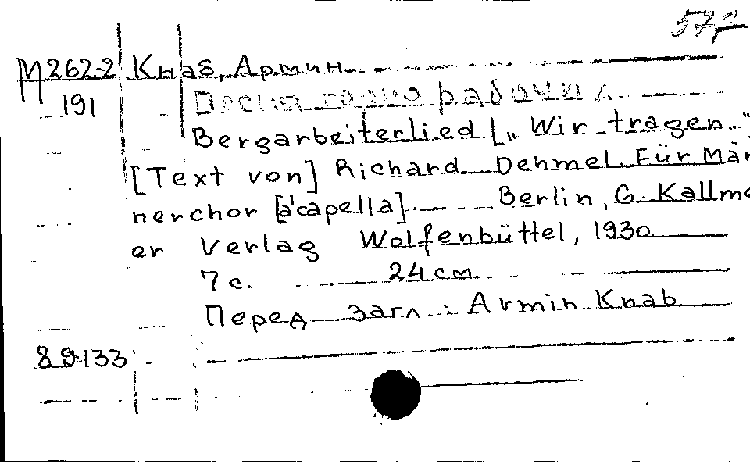 572
М262-2 Кнаб, Армин.
191 Песня горнорабочих.
Bergarbeiterlied [„Wir tragen..."
[Text von] Richard Dehmel. Für Män
nerchor [a capella]. Berlin, G. Kallme
er Verlag Wolfenbüttel, 1930
7 с. 24 см
Перед загл.: Armin Knab
89-133